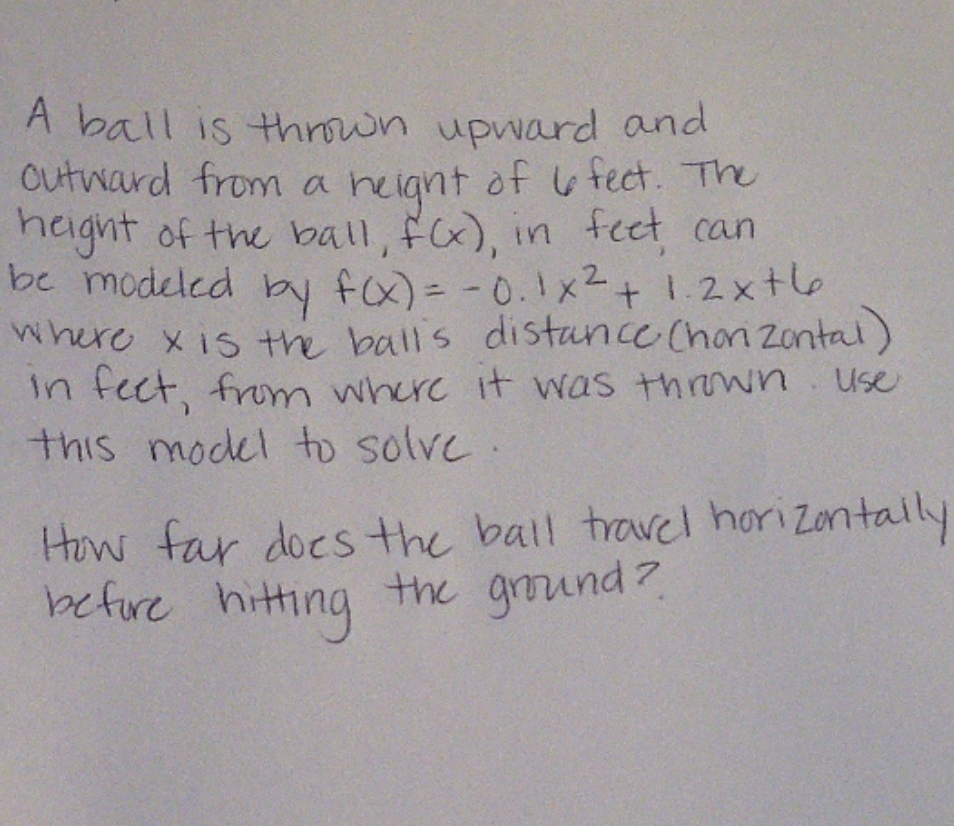 A ball is thrown upward and
outward from a height of 6 feet. The
height of the ball, f(x), in feet can
be modeled by f(x) = -0.1x² + 1.2x+6
where x is the ball's distance (horizontal)
in feet, from where it was thrown. Use
this model to solve.
How far does the ball travel horizontally
before hitting the ground?